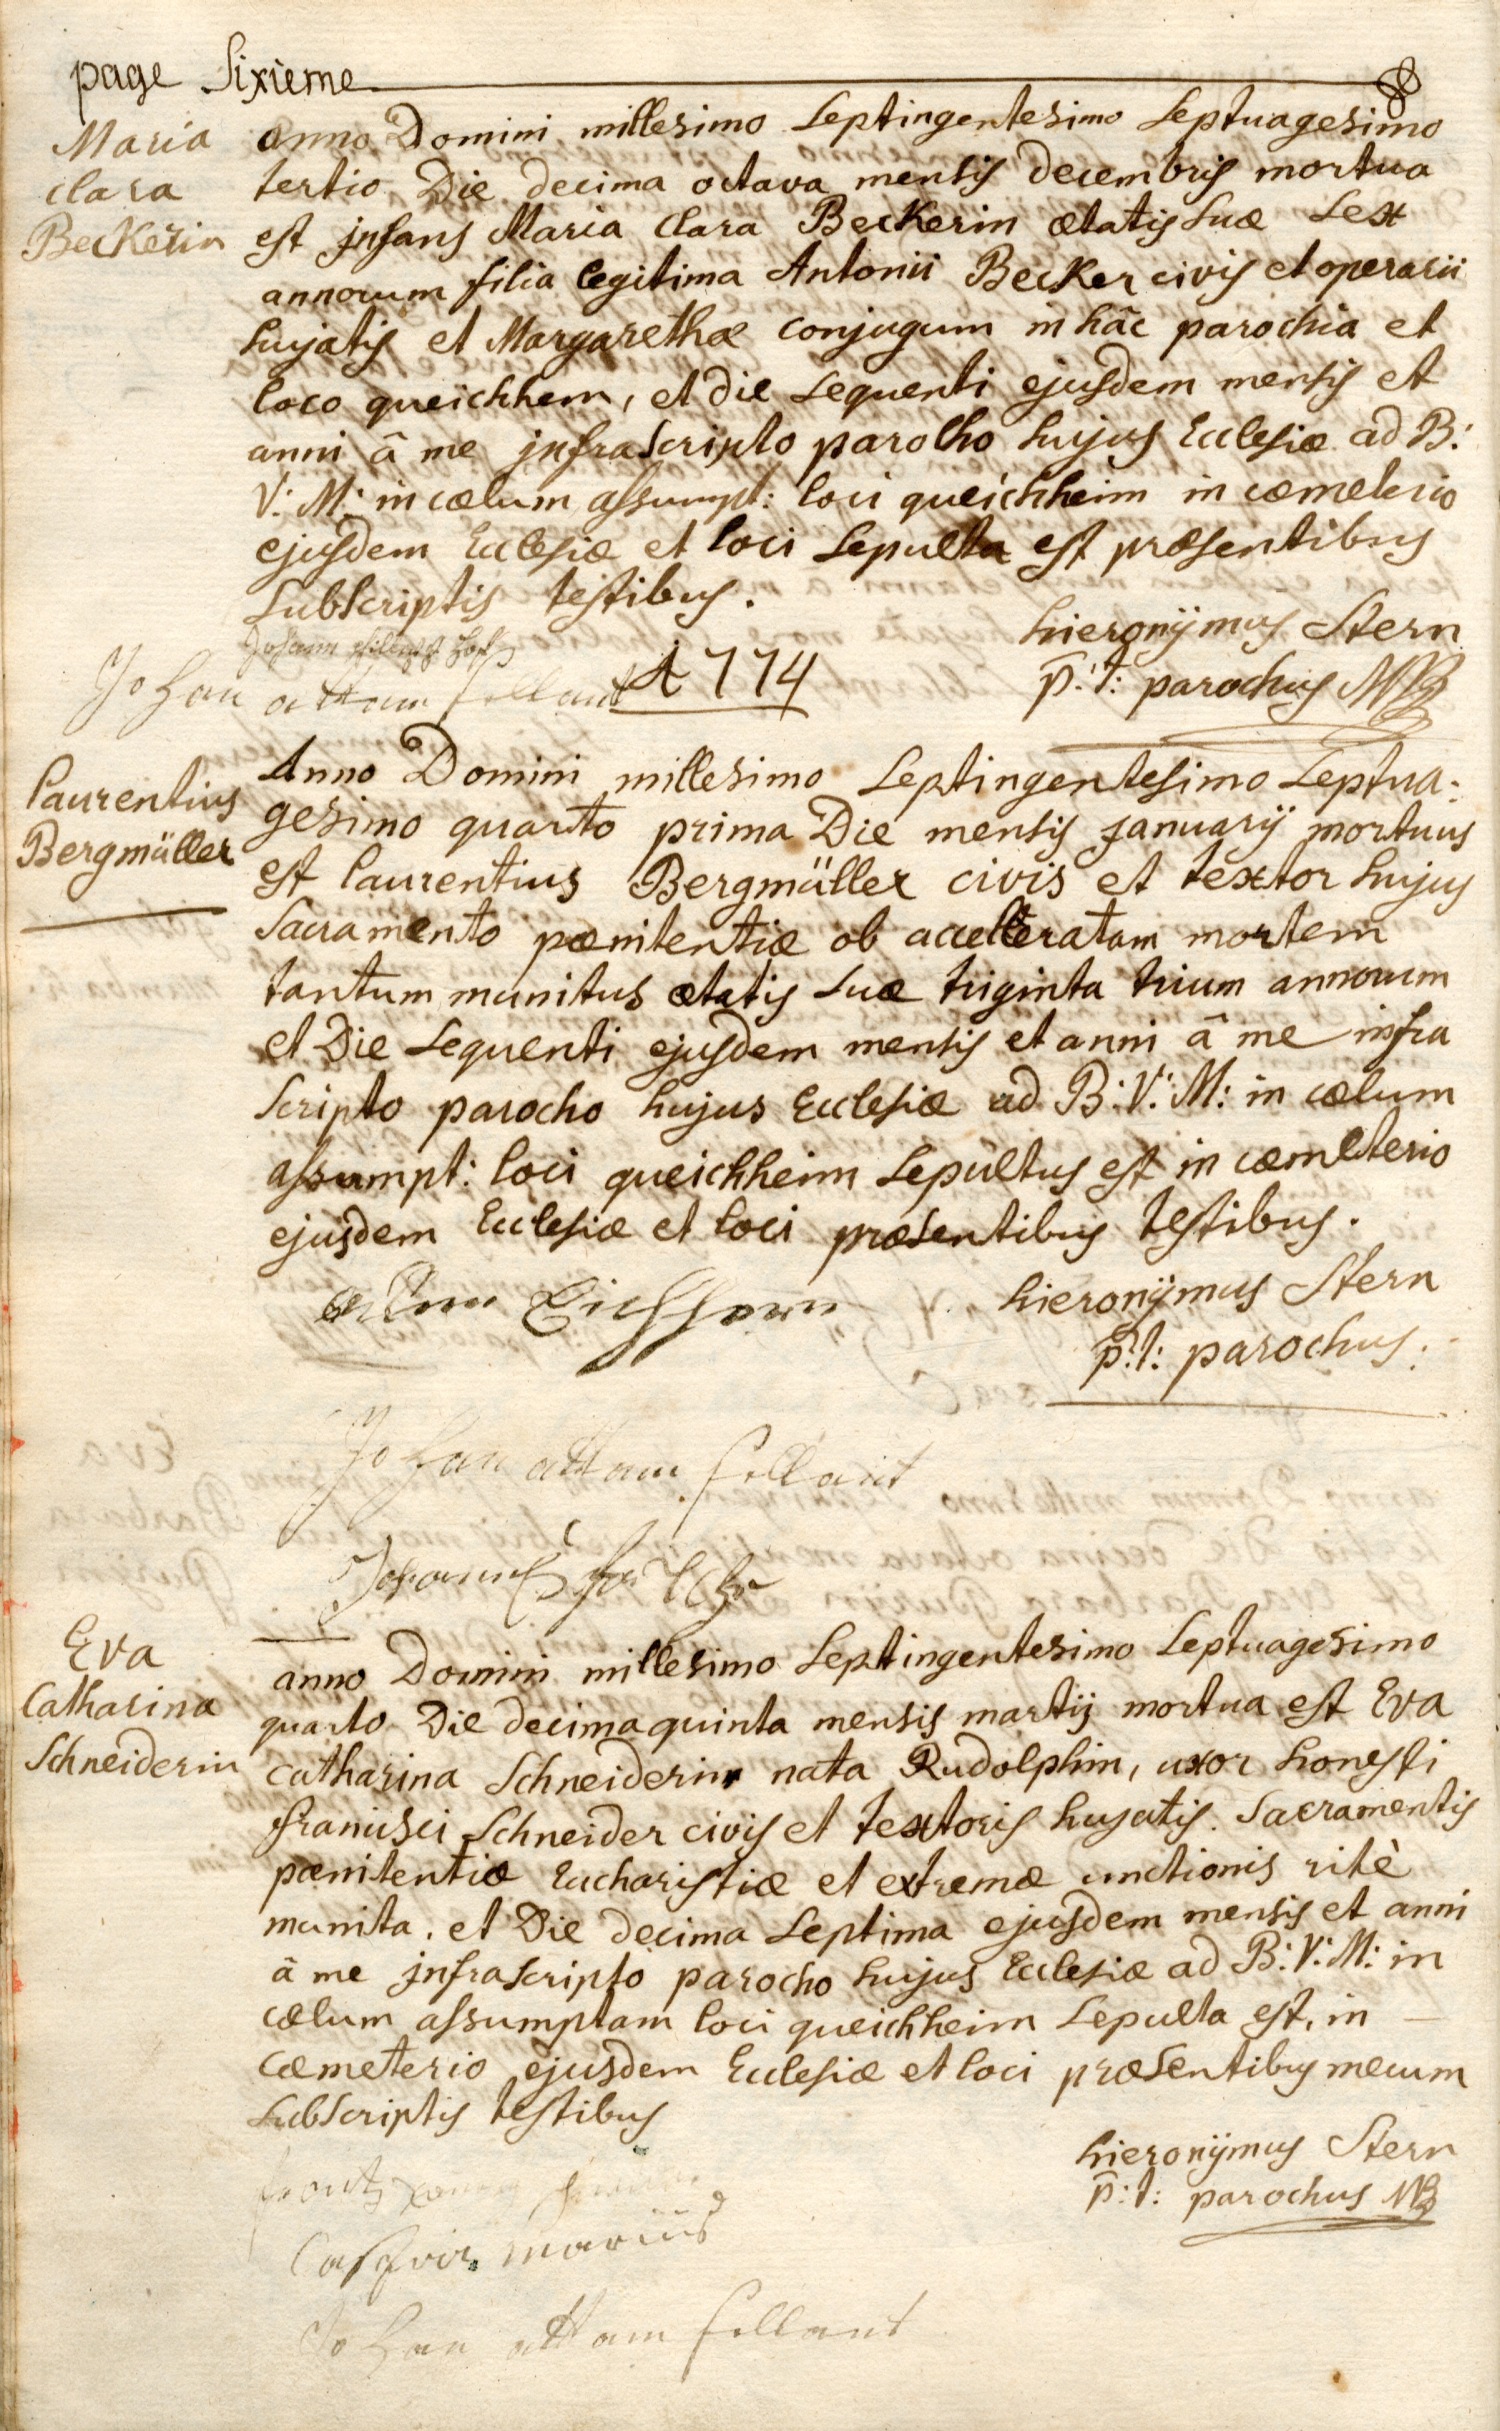 page Sixieme
Maria
Clara
Beckerin
anno Domini millesimo Septingentesimo Septuagesimo
tertio Die decima octava mensis decembris mortua
est jnfans Maria Clara Beckerin ætatis Suæ Sex
annorum filia legitima Antonii Becker civis et operarii
hujatis et Margarethæ conjugum in hâc parochia et
loco queichhem, et die Sequenti ejusdem mensis et
anni â me jnfraScripto parocho hujus Ecclesiæ ad B:
V: M: in cælum assumpt: loci queichheim in cœmeterio
ejusdem Ecclesiæ et loci Sepulta est præsentibus
SubScriptis testibus.
hieronÿmus Stern
p: t: parochus
Johann
Johan attam fellant
1774
Laurentius
Bergmüller
Anno Domini millesimo Septingentesimo Septua-
gesimo quarto prima Die mensis januarÿ mortuus
est Laurentius Bergmüller civis et textor hujus
Sacramento pœnitentiæ ob accelleratam mortem
tantum munitus ætatis Suæ triginta trium annorum
et Die Sequenti ejusdem mensis et anni â me infra
Scripto parocho hujus Ecclesiæ ad B: V: M: in cælum
assumpt: loci queichheim Sepultus est in cœmeterio
ejusdem Ecclesiæ et loci præsentibus testibus.
hieronÿmus Stern
p: t: parochus.
Eichhorn
Johan attam fellant
Johannes
Eva
Catharina
Schneiderin
anno Domini millesimo Septingentesimo Septuagesimo
quarto Die decima quinta mensis martij mortua est Eva
Catharina Schneiderin nata Rudolphin, uxor honesti
francisci Schneider civis et textoris hujatis. Sacramentis
pœnitentiæ Eucharistiæ et extremæ unctionis ritè
munita. et Die decima Septima ejusdem mensis et anni
â me jnfraScripto parocho hujus Ecclesiæ ad B: V: M: in
cælum assumptam loci queichheim Sepulta est, in
cœmeterio ejusdem Ecclesiæ et loci præsentibus mecum
SubScriptis testibus
hieronÿmus Stern
p: t: parochus
Johan attam fellant